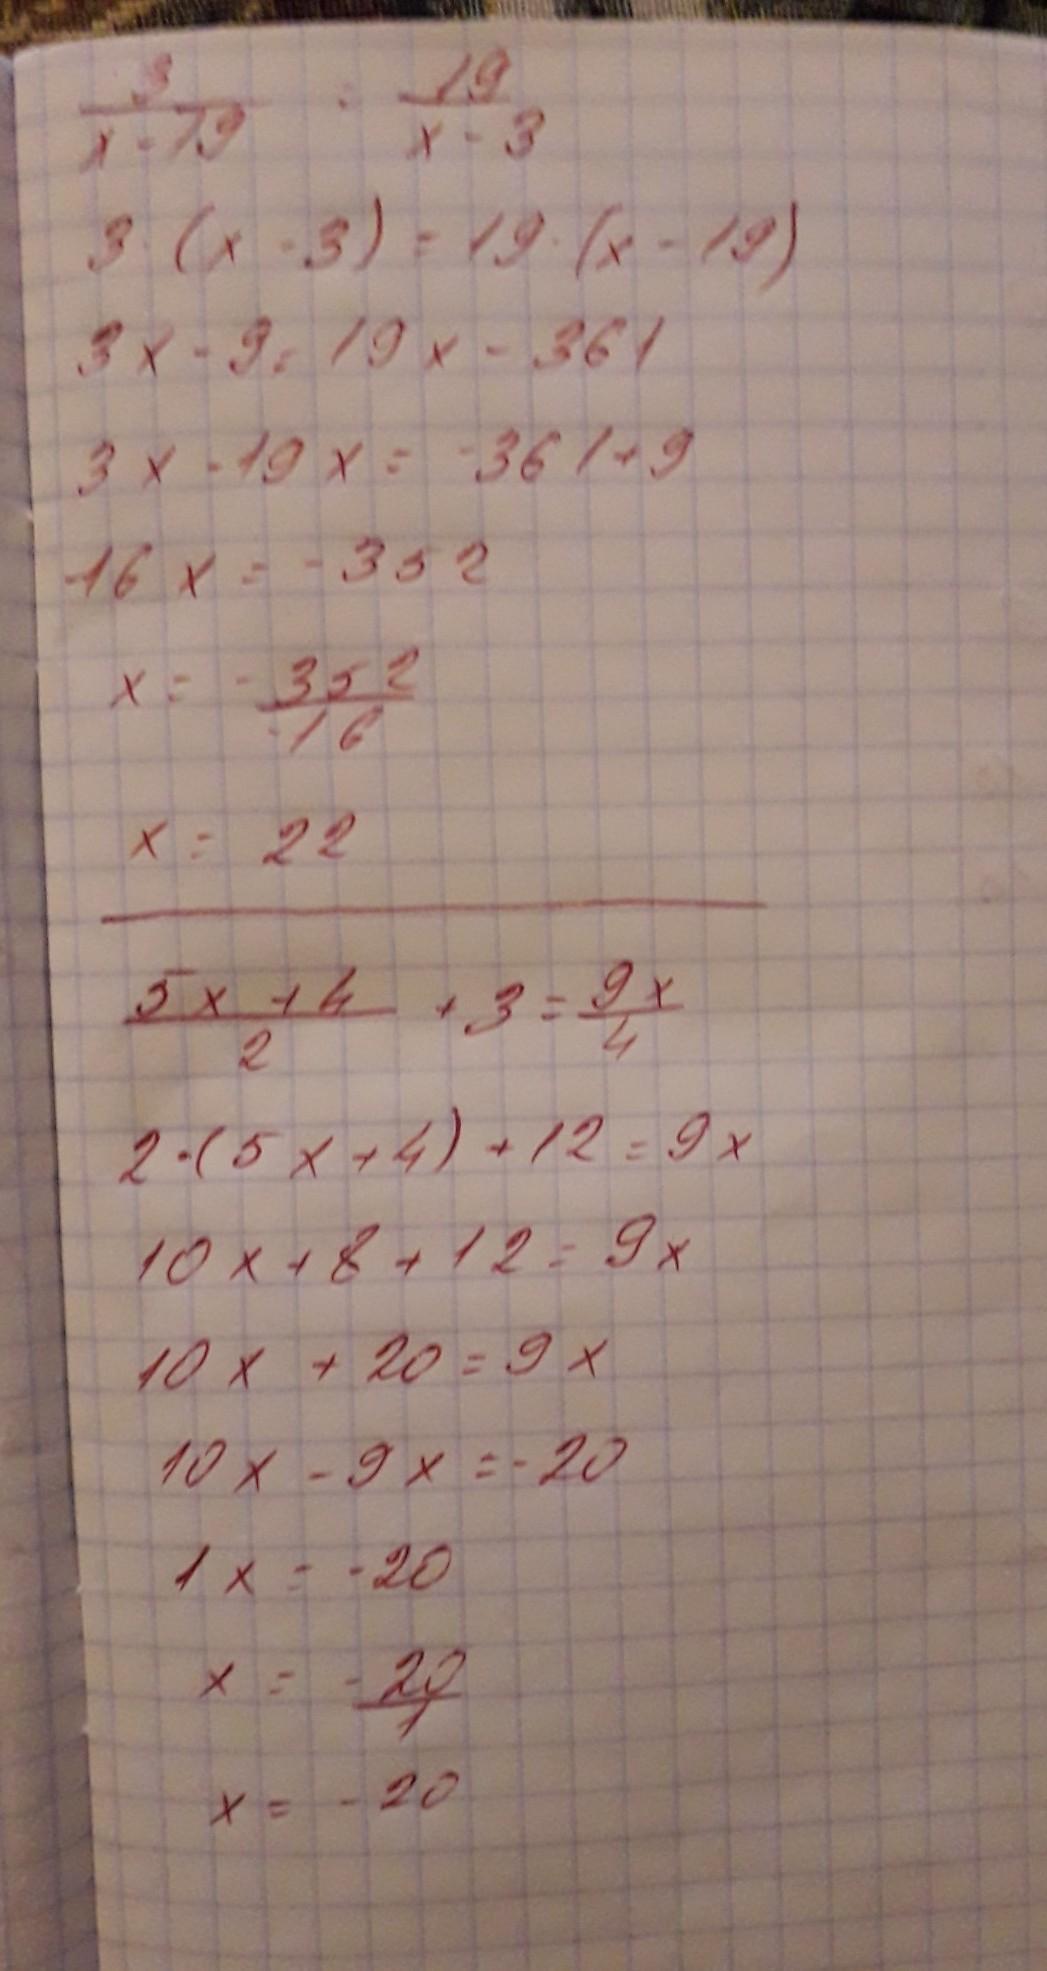 3/(x-19) = 19/(x-3)
3·(x-3)=19·(x-19)
3x-9=19x-361
3x-19x=-361+9
-16x=-352
x=-352/-16
x=22
(5x+4)/2+3=9x/4
2·(5x+4)+12=9x
10x+8+12=9x
10x+20=9x
10x-9x=-20
1x=-20
x=-20/1
x=-20